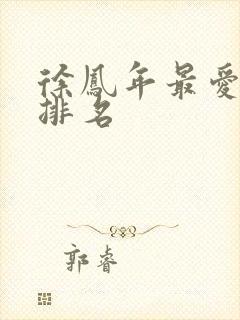 徐鳳年最愛
排名
郭睿